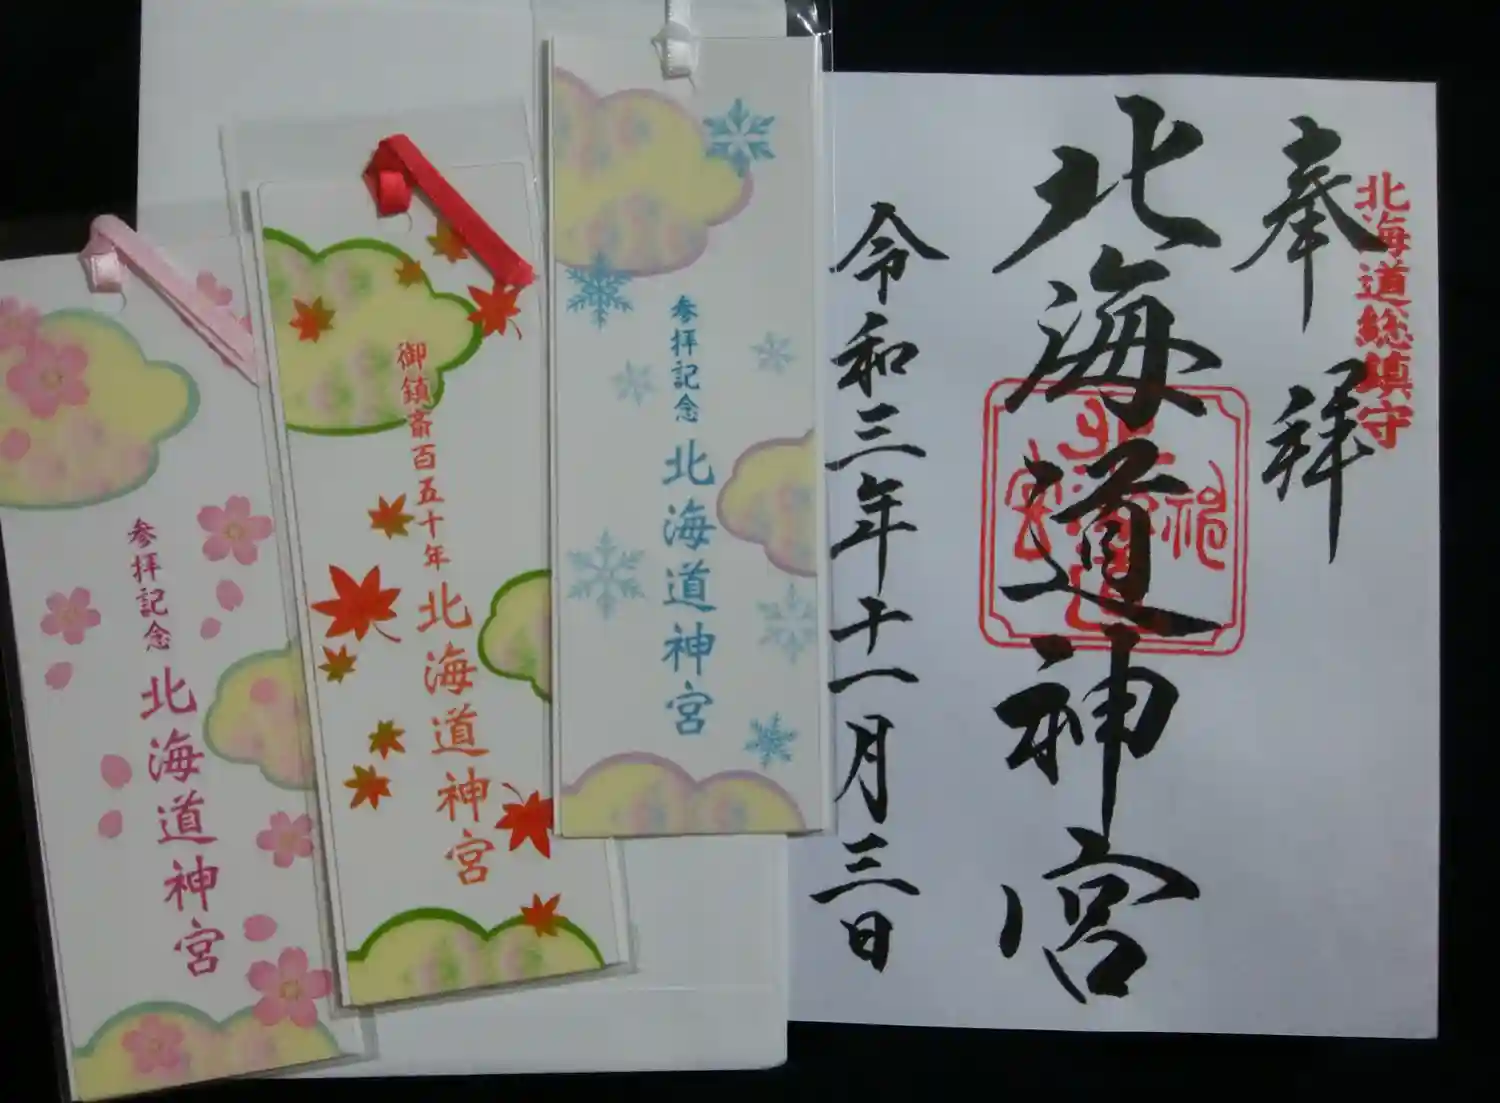 北海道総鎮守
奉拝
北海道神宮
令和三年十一月三日
参拝記念 北海道神宮
御鎮斎百五十年 北海道神宮
参拝記念 北海道神宮